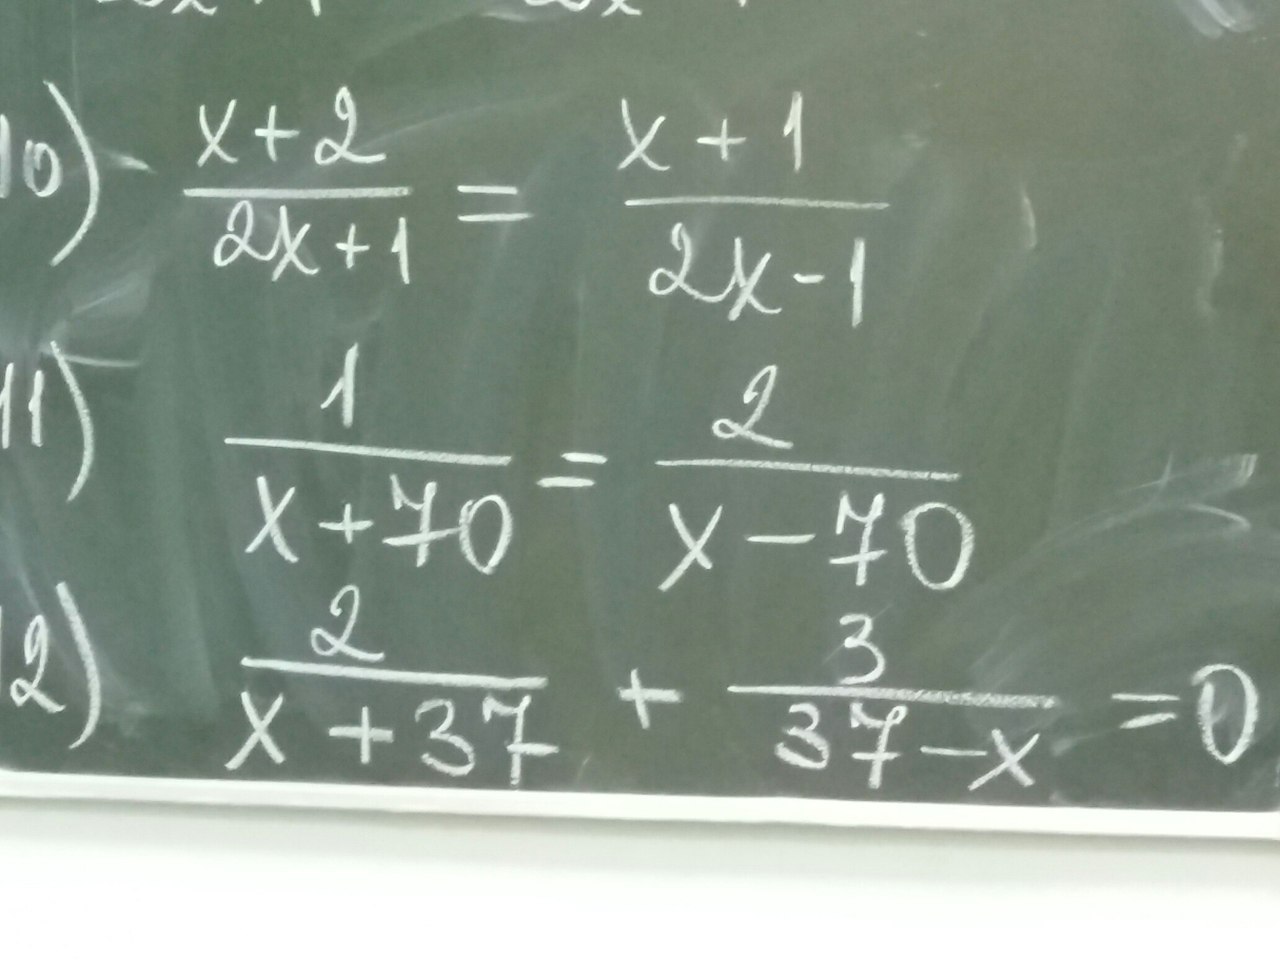 10) x+2/2x+1 = x+1/2x-1
11) 1/x+70 = 2/x-70
12) 2/x+37 + 3/37-x =0